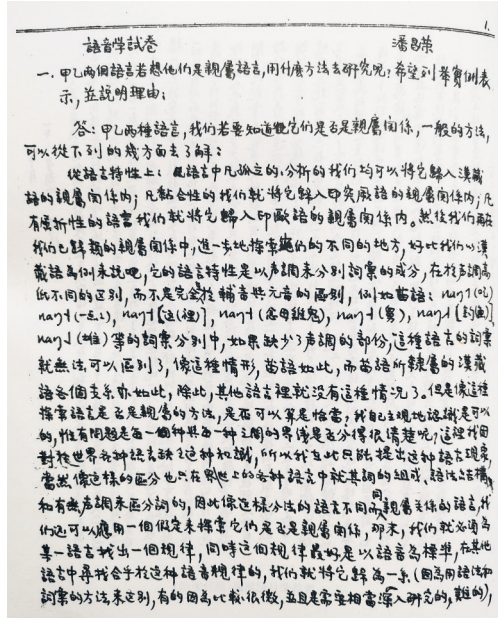 1.
語音學試卷 潘昌荣
一.甲乙兩個語言若想他們是親屬語言,用什麼方法去研究呢?希望列舉實例表
示,並說明理由:
答:甲乙兩種語言,我们若要知道它们是否是親屬関係,一般的方法,
可以從下列的幾方面去了解:
從語言特性上:語言中凡孤立的、分析的我们均可以將它歸入漢藏
語的親屬関係内;凡黏合性的我们就將它歸入印突厥語的親屬関係内;凡
有屈折性的語言我们就將它歸入印歐語的親屬関係内。然後我们再在
我们已歸類的親屬関係中,進一步地探索它们的不同的地方,好比我们以漢
藏語為例来説吧,它的語言特性是以声調来分别詞彙的成分,在於声調高
低不同的區别,而不是完全於輔音與元音的區别,例如苗語:
等的詞彙分别中,如果缺少了声調的部份,這種語言的詞彙
就無法可以區别了,像這種情形,苗語如此,而苗語所隸屬的漢藏
語各個支系亦如此,除此,其他語言裡就没有這種情况了。但是像這種
探索語言是否是親屬的方法,是否可以算是恰當?我自己主观地認識是可以
的,惟有問題是每一個種與每一種之間的界綫是否分得很清楚呢?這裡我因
對於世界各种語言缺乏這种知識,所以我在此只能提出这种語言現象,
當然像這樣的區分也只在世上的各种語言中就其詞的組成、語法結構
和有無声調来區分詞的,因此像這樣分法的語言不同而同親屬関係的語言,我
们还可以應用一個假定来探索它们是否是親屬関係,那末,我们就必須為
某一語言找出一個規律,同時這個規律最好是以語音為標準,在其他
語言中尋找合乎於这种語音規律的,我们就將它歸為一系(因為用語法和
詞彙的方法来區别,有的因為比較很微,並且是需要相當深入研究的,難的),